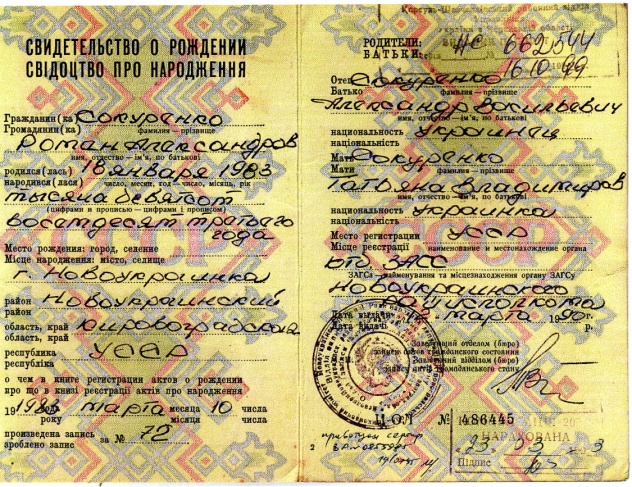 СВИДЕТЕЛЬСТВО О РОЖДЕНИИ
СВІДОЦТВО ПРО НАРОДЖЕННЯ
Гражданин(ка) Сокуренко
Громадянин(ка) фамилия – прізвище
Роман Александров
имя, отчество – ім'я, по батькові
родился(лась) января 1983
народився(лась) число, месяц, год – число, місяць, рік
тысяча девятсот
(цифрами и прописью – цифрами і прописом)
восемдесят третьего
года
Место рождения: город, селение
Місце народження: місто, селище
г. Новоукраинка
район Новоукраинский
район
область, край Кировоградская
область, край
республика УССР
республіка
о чем в книге регистрации актов о рождении
про що в книзі реєстрації актів про народження
1983 года марта месяца 10 числа
року місяця числа
произведена запись за № 72
зроблено запис
РОДИТЕЛИ:
БАТЬКИ:
НС 662544
16.10.99
Отец Сокуренко
Батько фамилия – прізвище
Александр Васильевич
имя, отчество – ім'я, по батькові
национальность украинец
національність
Мать Сокуренко
Мати фамилия – прізвище
Татьяна Владимиров
имя, отчество – ім'я, по батькові
национальность украинка
національність
Место регистрации УССР
Місце реєстрації наименование и местонахождение органа
ЗАГСа – найменування та місцезнаходження органу ЗАГСу
Новоукраинского
Дата выдачи марта 1990 г.
Дата видачі р.
Заведующий отделом (бюро)
записи актов гражданского состояния
Завідуючий відділом (бюро)
запису актів громадянського стану
II-ОЛ № 486445
2
НАРАХОВАНА
Підпис